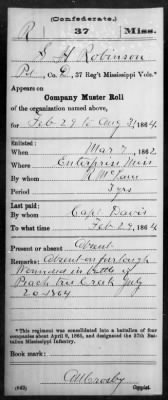 (Confederate.)
R 37 Miss.
S H Robinson
Pvt, Co. , 37 Reg't Mississippi Vols.*
Appears on
Company Muster Roll
of the organization named above,
for Feb 29 to Aug 31, 1864.
Enlisted:
When Mar 7, 1862.
Where Enterprise Miss
By whom R McLain
Period 3 yrs
Last paid:
By whom Capt Davis
To what time Feb 29, 1864.
Present or absent Absent
Remarks: Absent on furlough
Wounded in battle of
Peach tree Creek July
20-1864
*This regiment was consolidated into a battalion of four
companies about April 9, 1865, and designated as the 37th Battalion
Mississippi Infantry.
Book mark:
(642) Crosby
Copyist.